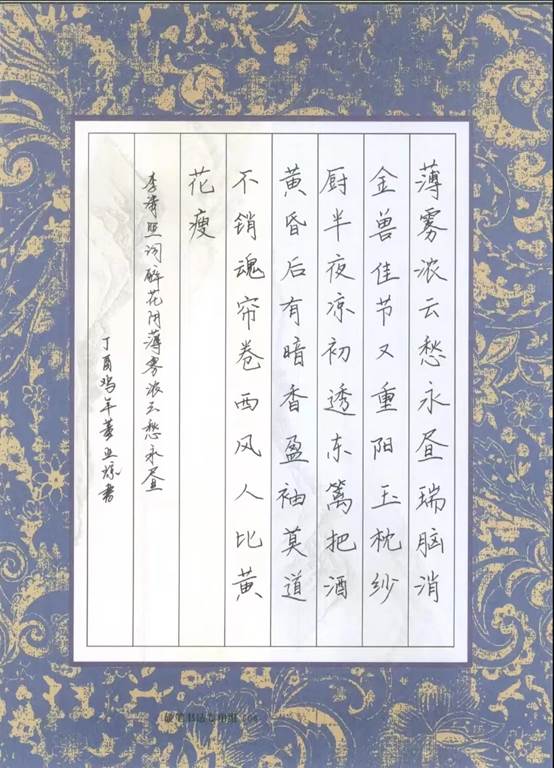 薄雾浓云愁永昼瑞脑消
金兽佳节又重阳玉枕纱
厨半夜凉初透东篱把酒
黄昏后有暗香盈袖莫道
不销魂帘卷西风人比黄
花瘦
李清照词醉花阴薄雾浓云愁永昼
丁酉鸡年董书
硬笔书法专用纸